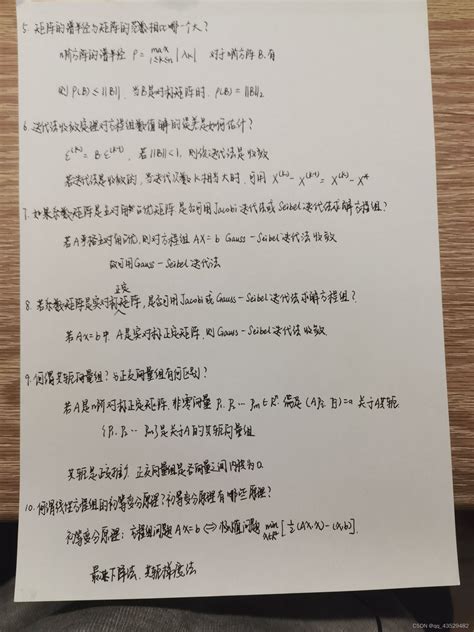 5. 矩阵的谱半径与矩阵的范数相比哪一个大?
n阶方阵的谱半径 ρ = max 1≤k≤n |λk| 对于n阶方阵B,有
则 ρ(B) ≤ ||B||, 当B是对称矩阵时, ρ(B) = ||B||₂
6. 迭代法收敛定理对方程组数值解的误差是如何估计?
ε^(k) = B ε^(k-1), 若||B||<1, 则该迭代法是收敛
若迭代法是收敛的,当迭代次数k相当大时,可用 X^(k) - X^(k-1) = X^(k) - X*
7. 如果系数矩阵是主对角占优矩阵,是否可用Jacobi迭代法或Seibel迭代法求解方程组?
若A严格主对角占优,则对方程组 AX=b Gauss-Seibel迭代法收敛
故可用Gauss-Seibel迭代法
8. 若系数矩阵是实对称正定矩阵,是否可用Jacobi或Gauss-Seibel迭代法求解方程组?
若AX=b中,A是实对称正定矩阵,则Gauss-Seibel迭代法收敛
9. 何谓共轭向量组?与正交向量组有何区别?
若A是n阶对称正定矩阵,非零向量 P₁ P₂ … Pm∈Rⁿ 满足 (APi, Pj)=0 关于A共轭
{P₁ P₂ … Pm}是关于A的共轭向量组
共轭是正交推广,正交向量组是否向量之间内积为0.
10. 何谓线性方程组的初等变分原理?初等变分原理有哪些原理?
初等变分原理: 方程组问题 AX=b ⟺ 极值问题 min x∈Rⁿ [½(AX,X)-(X,b)].
最速下降法,共轭梯度法
CSDN @qq_43529462